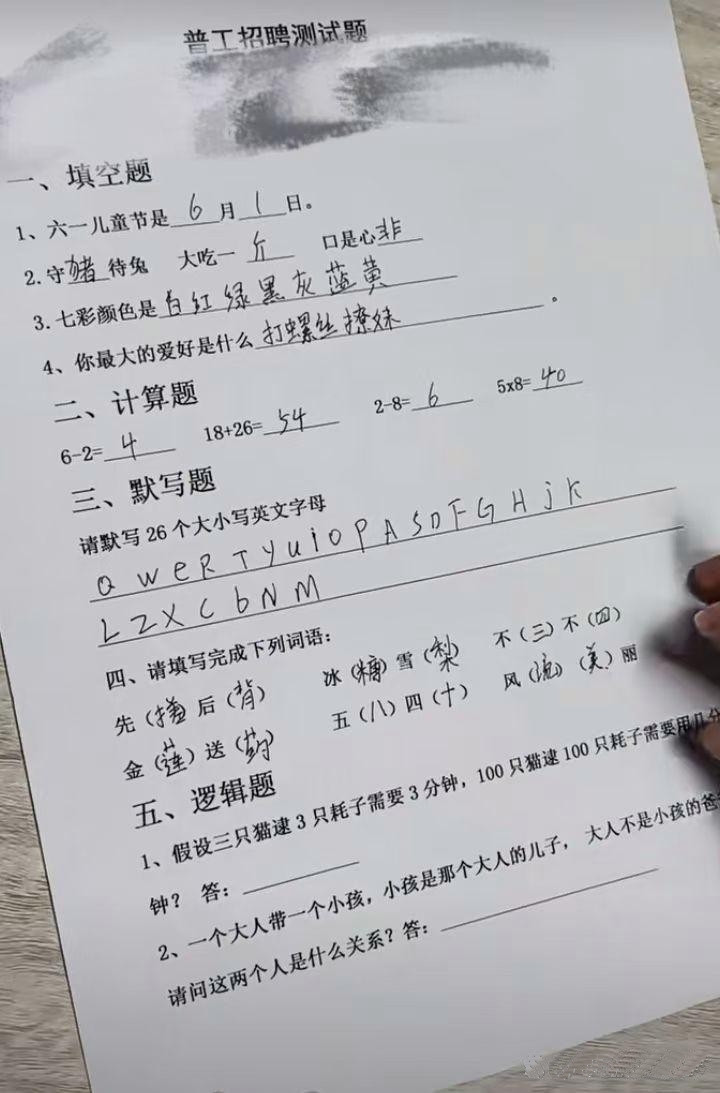 普工招聘测试题
一、填空题
1、六一儿童节是 6 月 1 日。
2.守猪待兔 大吃一斤 口是心非
3.七彩颜色是白红绿黑灰蓝黄
4、你最大的爱好是什么打螺丝撩妹。
二、计算题
6-2= 4 18+26= 54 2-8= 6 5x8= 40
三、默写题
请默写 26 个大小写英文字母
Q W e R T Y u i O P A S D F G H j K
L Z X C b N M
四、请填写完成下列词语:
先（搂）后（背） 冰（糖）雪（梨） 不（三）不（四）
金（莲）送（药） 五（八）四（十） 风（流）（美）丽
五、逻辑题
1、假设三只猫逮 3 只耗子需要 3 分钟，100 只猫逮 100 只耗子需要用几分
钟？ 答：
2、一个大人带一个小孩，小孩是那个大人的儿子， 大人不是小孩的爸
请问这两个人是什么关系？答：